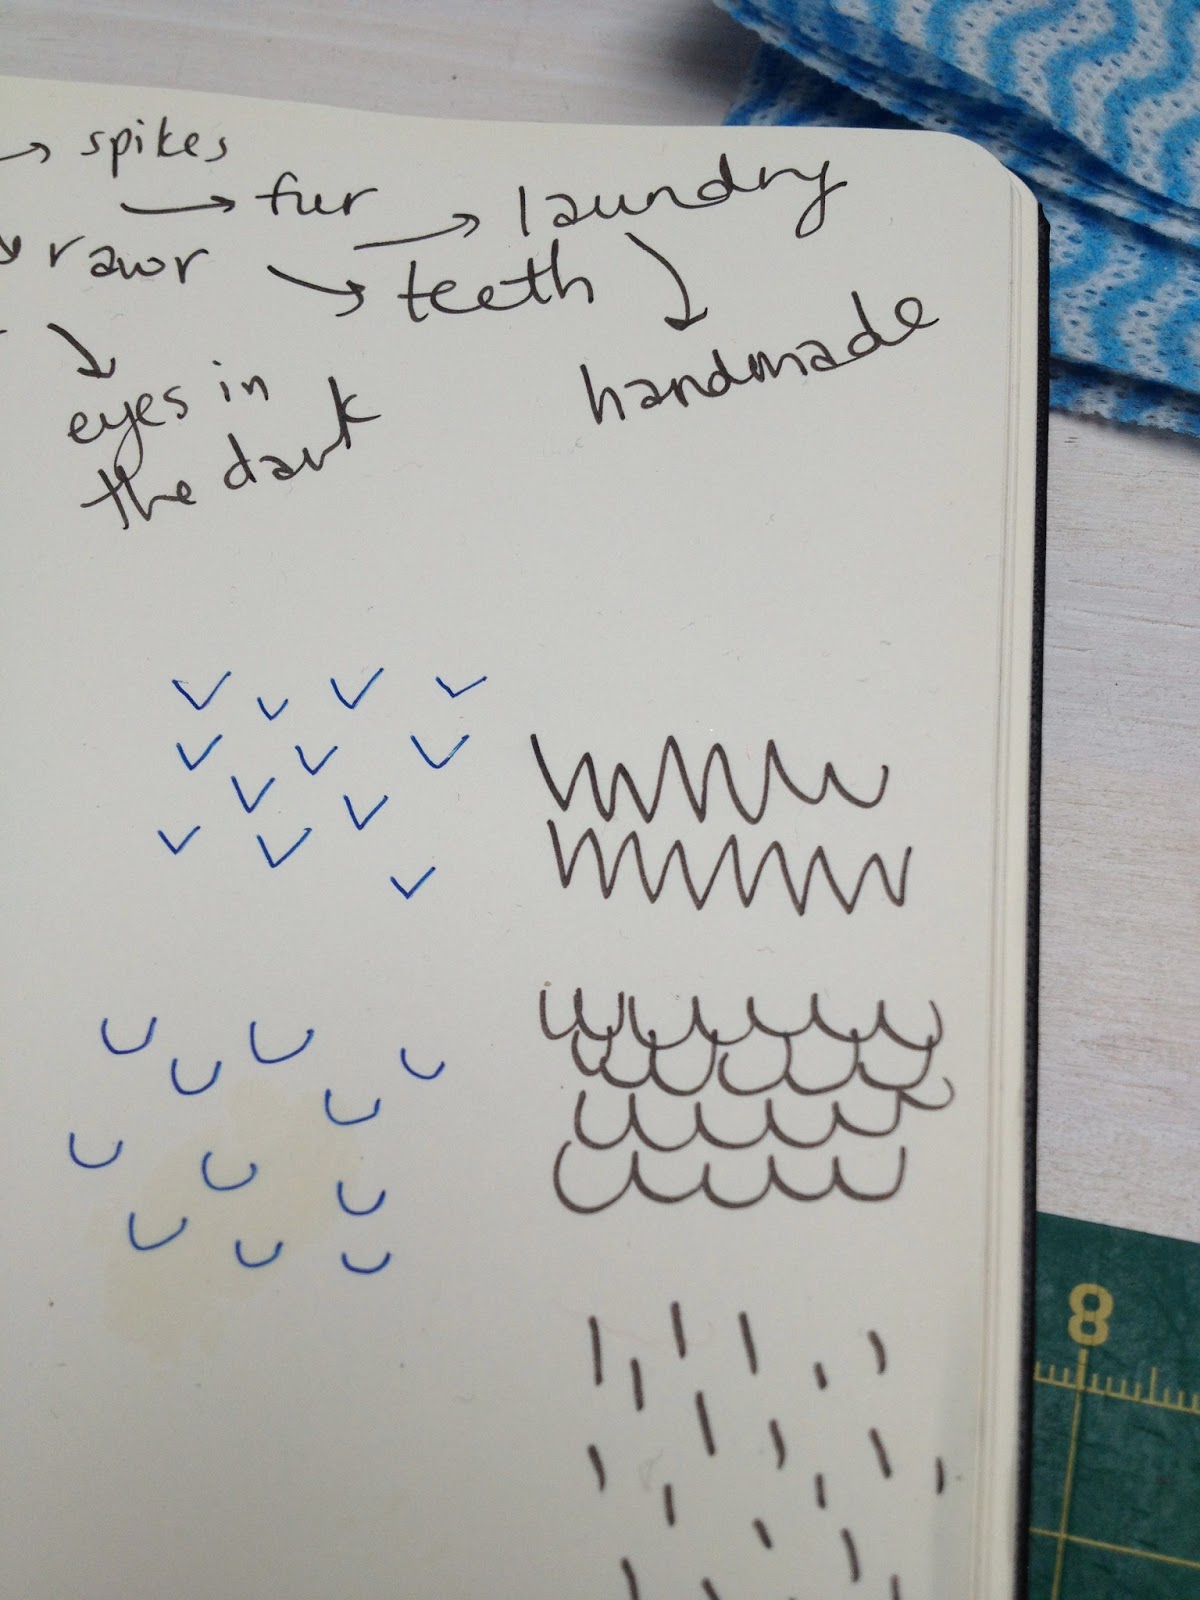 → spikes
→ fur
→ laundry
rawr → teeth
handmade
eyes in
the dark
8